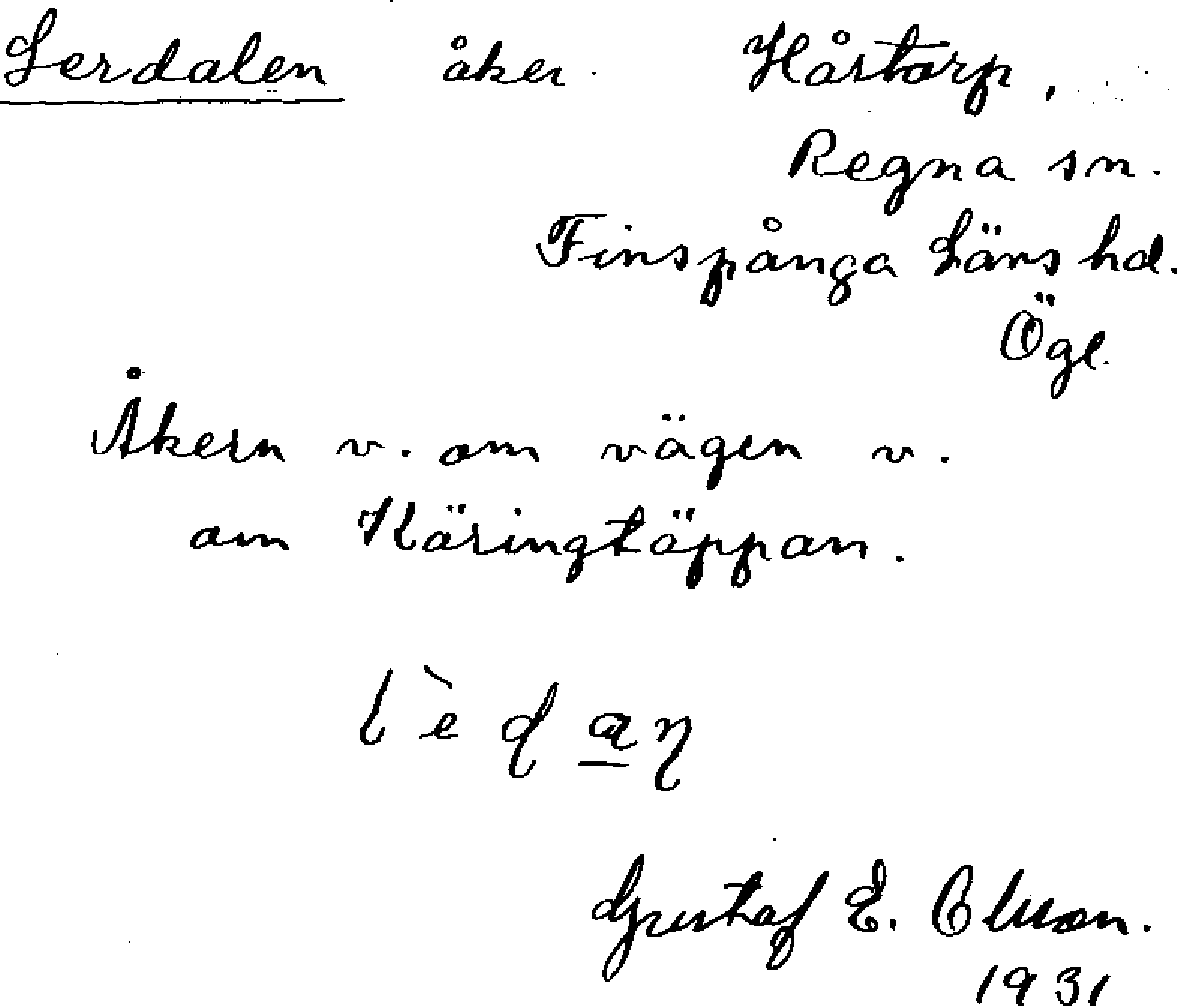 Lerdalen åker. Hårstorp,
Regna sn.
Finspånga Läns hd.
Ögl.
Åkern v. om vägen v.
om Käringtäppan.
Gustaf E. Olsson.
1931